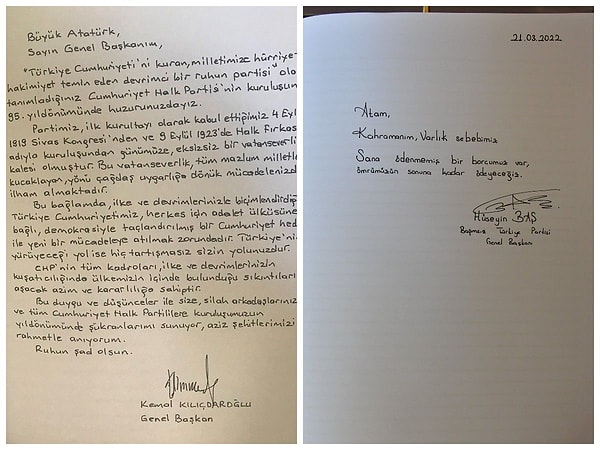 Büyük Atatürk,
Sayın Genel Başkanım,
"Türkiye Cumhuriyeti'ni kuran, milletimize hürriye
hakimiyet temin eden devrimci bir ruhun partisi" ola
tanımladığınız Cumhuriyet Halk Partisi'nin kuruluşun
95. yıldönümünde huzurunuzdayız.
Partimiz, ilk kurultayı olarak kabul ettiğimiz 4 Eyl
1919 Sivas Kongresi'nden ve 9 Eylül 1923'de Halk Fırkas
adıyla kuruluşundan günümüze, eksizsiz bir vatanseverli
kalesi olmuştur. Bu vatanseverlik, tüm mazlum milletle
kucaklayan, yönü çağdaş uygarlığa dönük mücadelenizd
ilham almaktadır.
Bu bağlamda, ilke ve devrimlerinizle biçimlendirdiği
Türkiye Cumhuriyetimiz, herkes için adalet ülküsüne
bağlı, demokrasiyle taçlandırılmış bir Cumhuriyet hed
ile yeni bir mücadeleye atılmak zorundadır. Türkiye'ni
yürüyeceği yol ise hiç tartışmasız sizin yolunuzdur.
CHP'nin tüm kadroları, ilke ve devrimlerinizin
kuşatıcılığında ülkemizin içinde bulunduğu sıkıntıları
aşacak azim ve kararlılığa sahiptir.
Bu duygu ve düşünceler ile size, silah arkadaşlarınız
ve tüm Cumhuriyet Halk Partililere kuruluşumuzun
yıldönümünde şükranlarımı sunuyor, aziz şehitlerimizi
rahmetle anıyorum.
Ruhun şad olsun.
Kemal KILIÇDAROĞLU
Genel Başkan
21.03.2022
Atam,
Kahramanım, Varlık sebebimiz
Sana ödenmemiş bir borcumuz var,
ömrümüzün sonuna kadar ödeyeceğiz.
Hüseyin BAŞ
Bağımsız Türkiye Partisi
Genel Başkanı